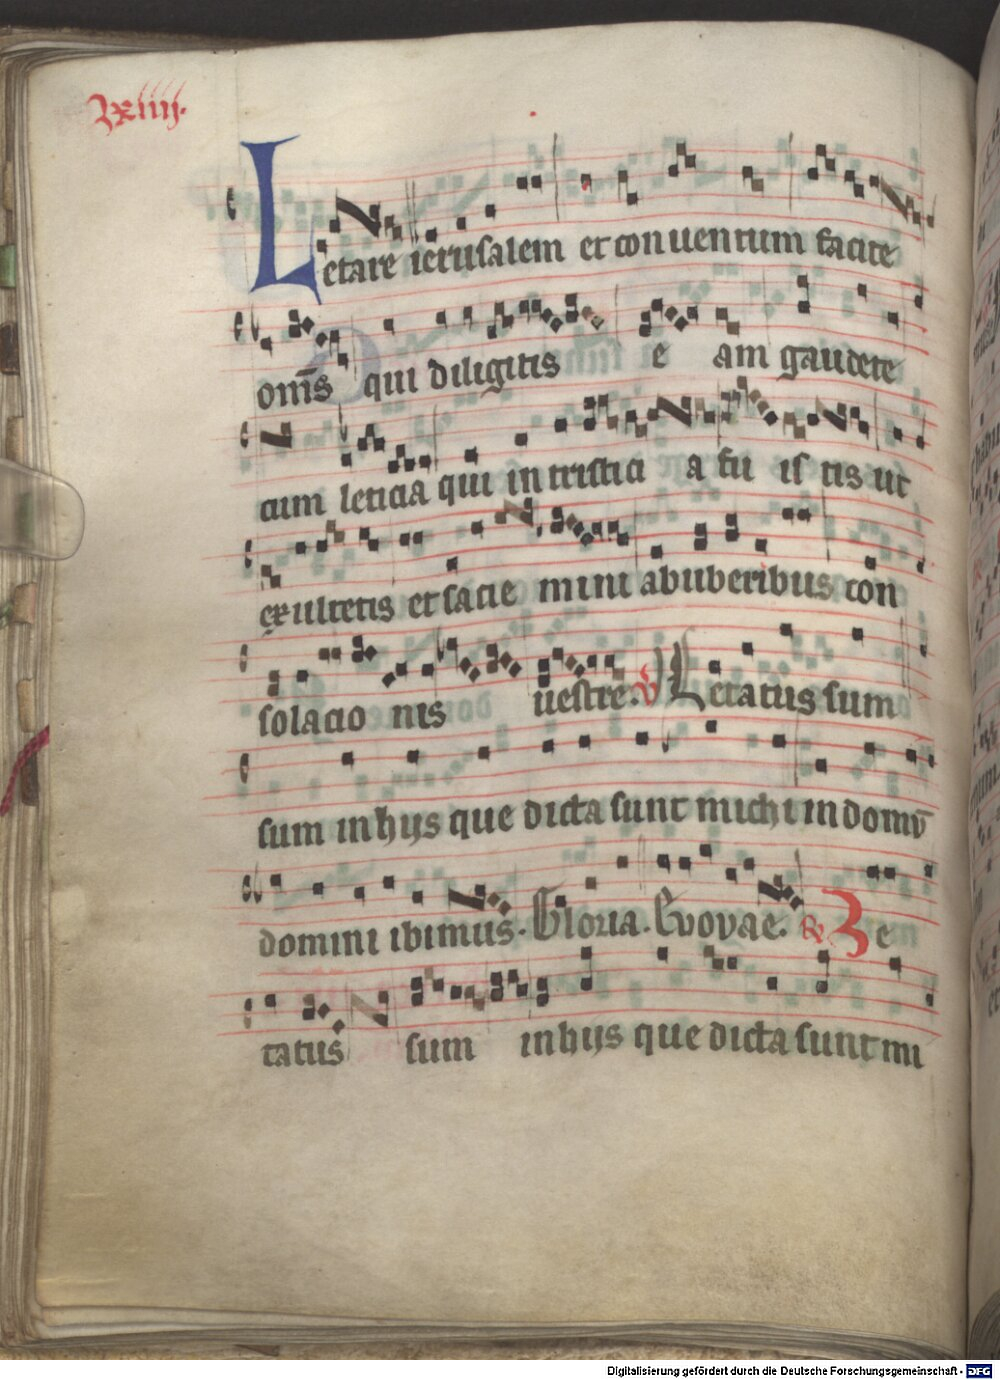 lxiiij.
Letare ierusalem et conuentum facite
om̅s qui diligitis e am gaudete
cum leticia qui in tristici a fu is tis ut
exultetis et sacie mini abuberibus con
solacio nis uestre. V Letatus sum
sum inhijs que dicta sunt michi in domū
domini ibimus. Gloria. Euouae. R Le
tatus sum inhijs que dicta sunt mi
Digitalisierung gefördert durch die Deutsche Forschungsgemeinschaft - DFG